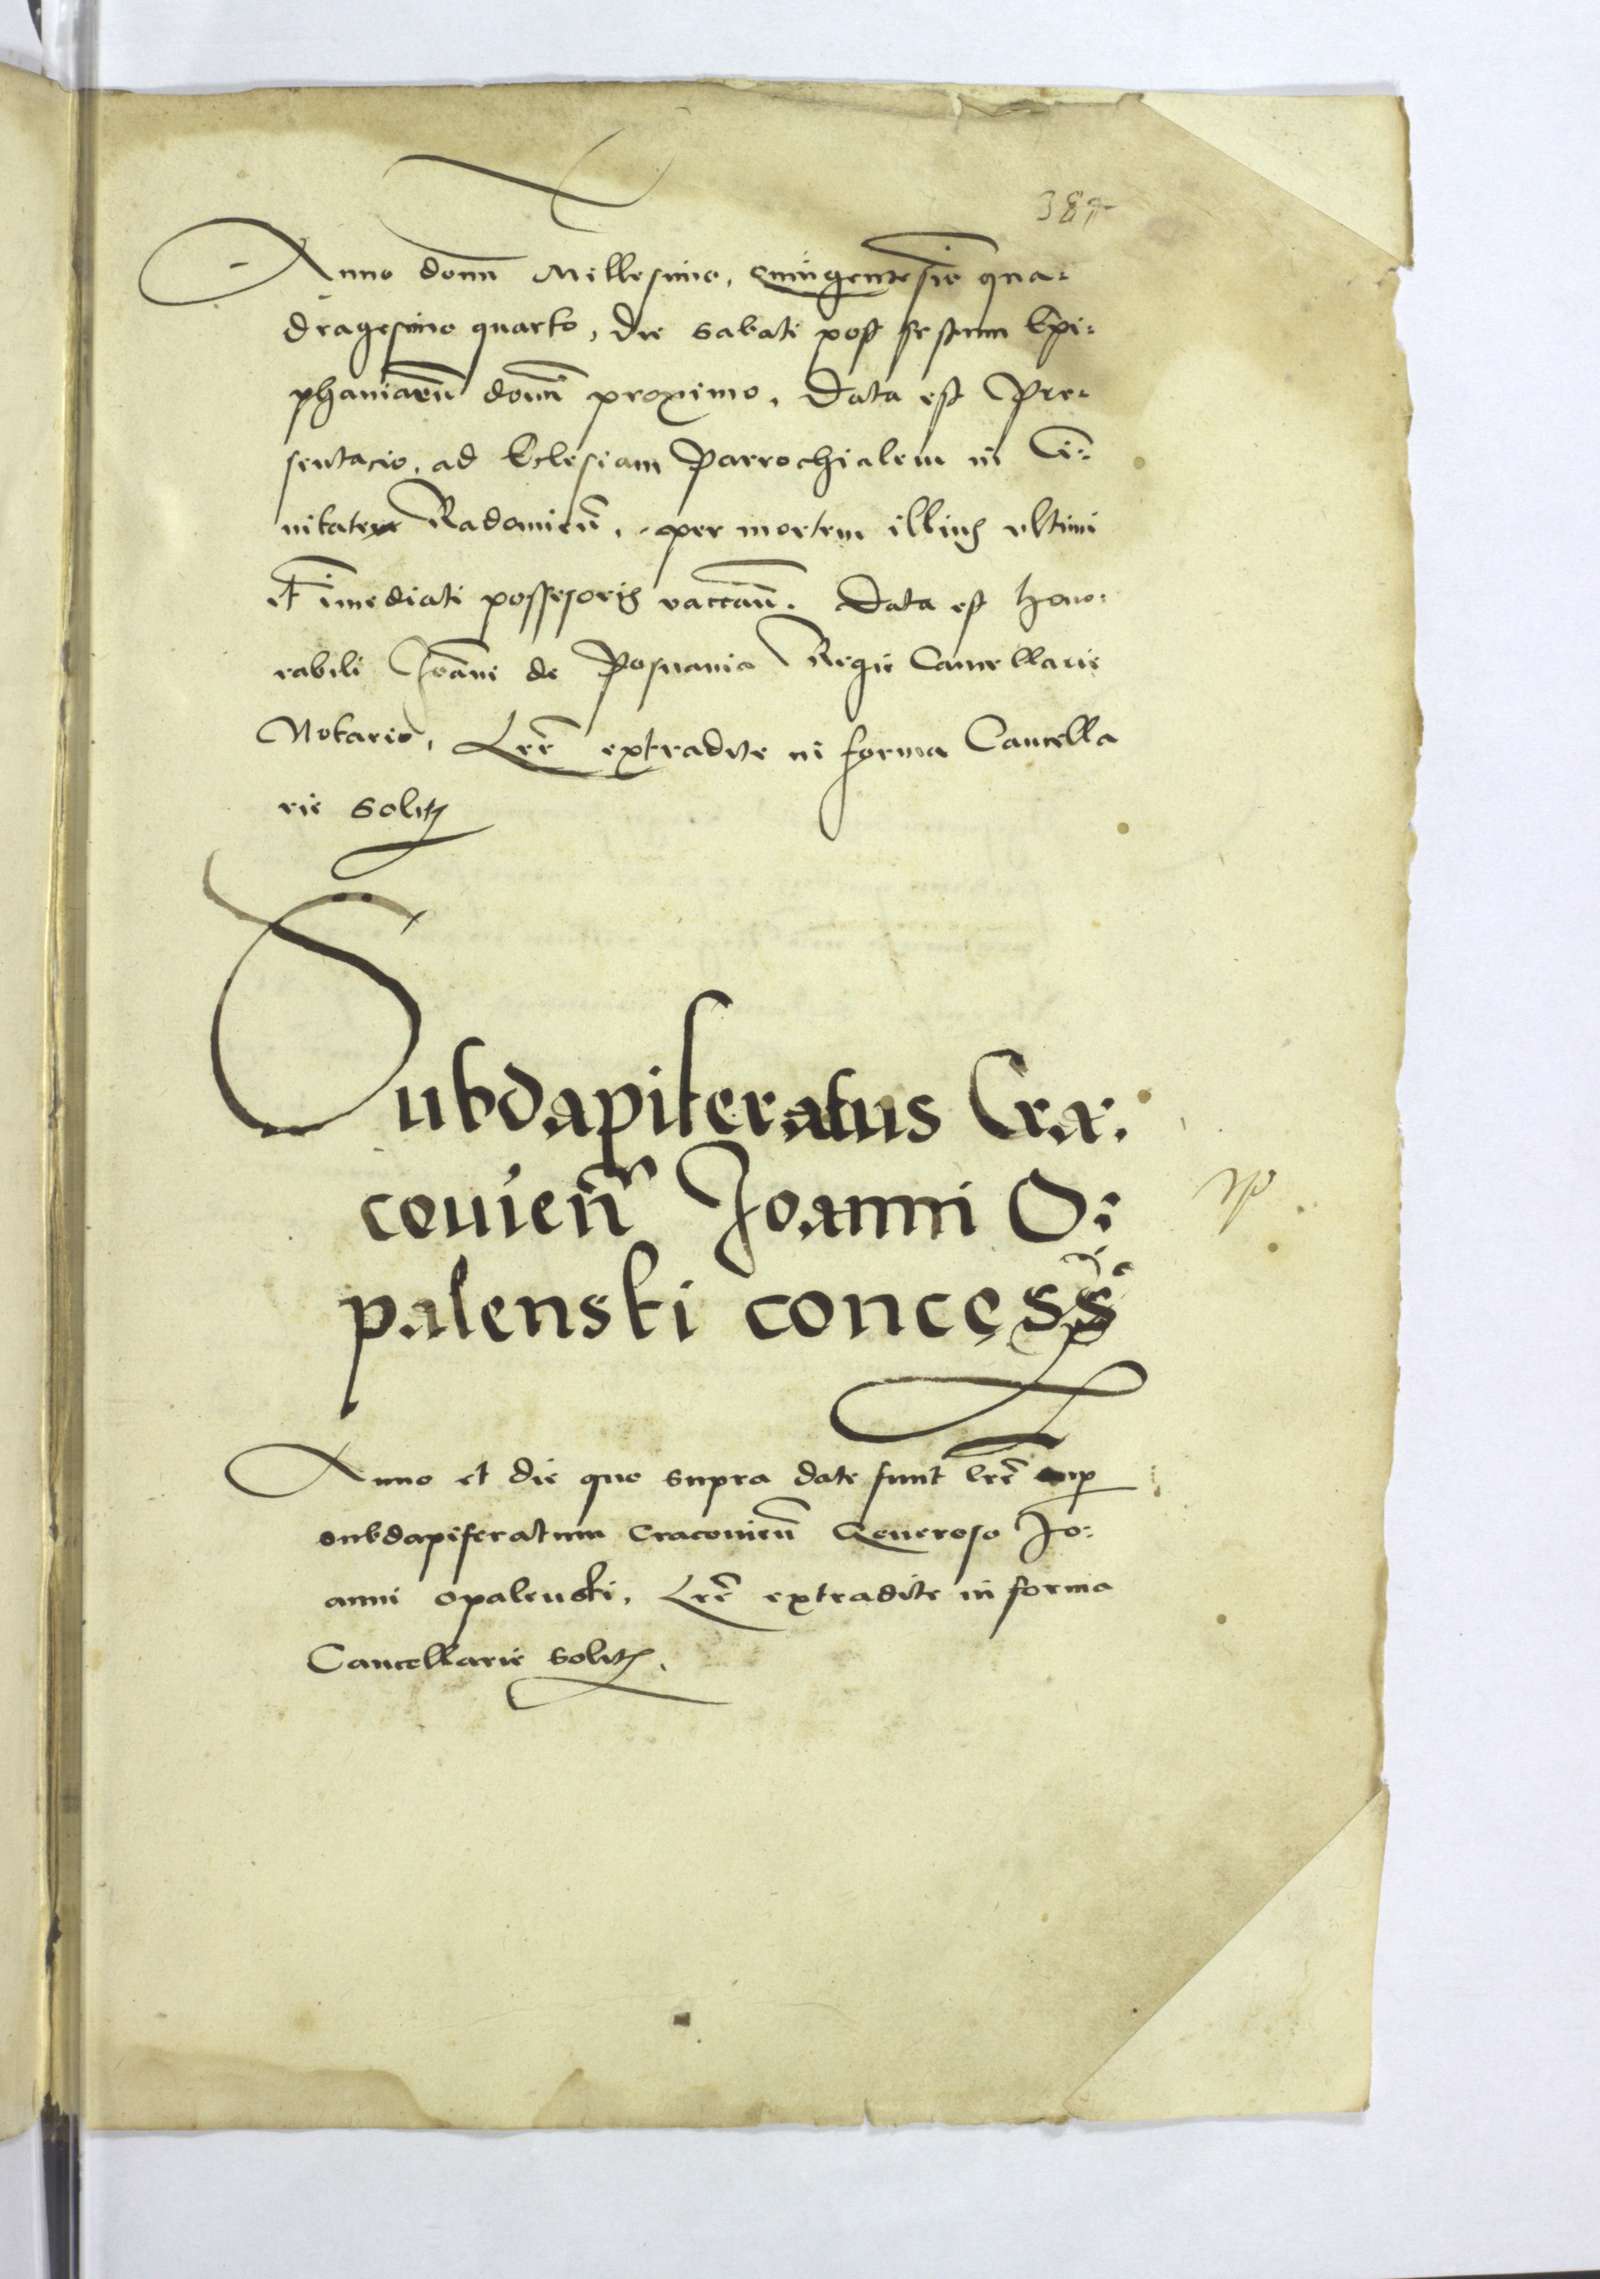 Anno domi Millesimo, quingentesio qua-
dragesimo quarto, die Sabati post festum Epi-
phaniarū domi proximo, Data est Pre-
sentacio, ad Eclesiam Parrochialem in Ci-
uitate Radomień, per mortem illius vltimi
et imediati possesoris vaccań. Data est hono-
rabili Joāni de Posnania Regie Cancellarie
Notario, Lrē extradite in forma Cancella
rie Solitis
Subdapiferatus Cra-
couień Joanni O-
palenski concess
Anno et die quo supra date sunt lrē sup
subdapiferatum Cracouień Generoso Jo-
anni Opalenski, Lrē extradite in forma
Cancellarie Solitis.